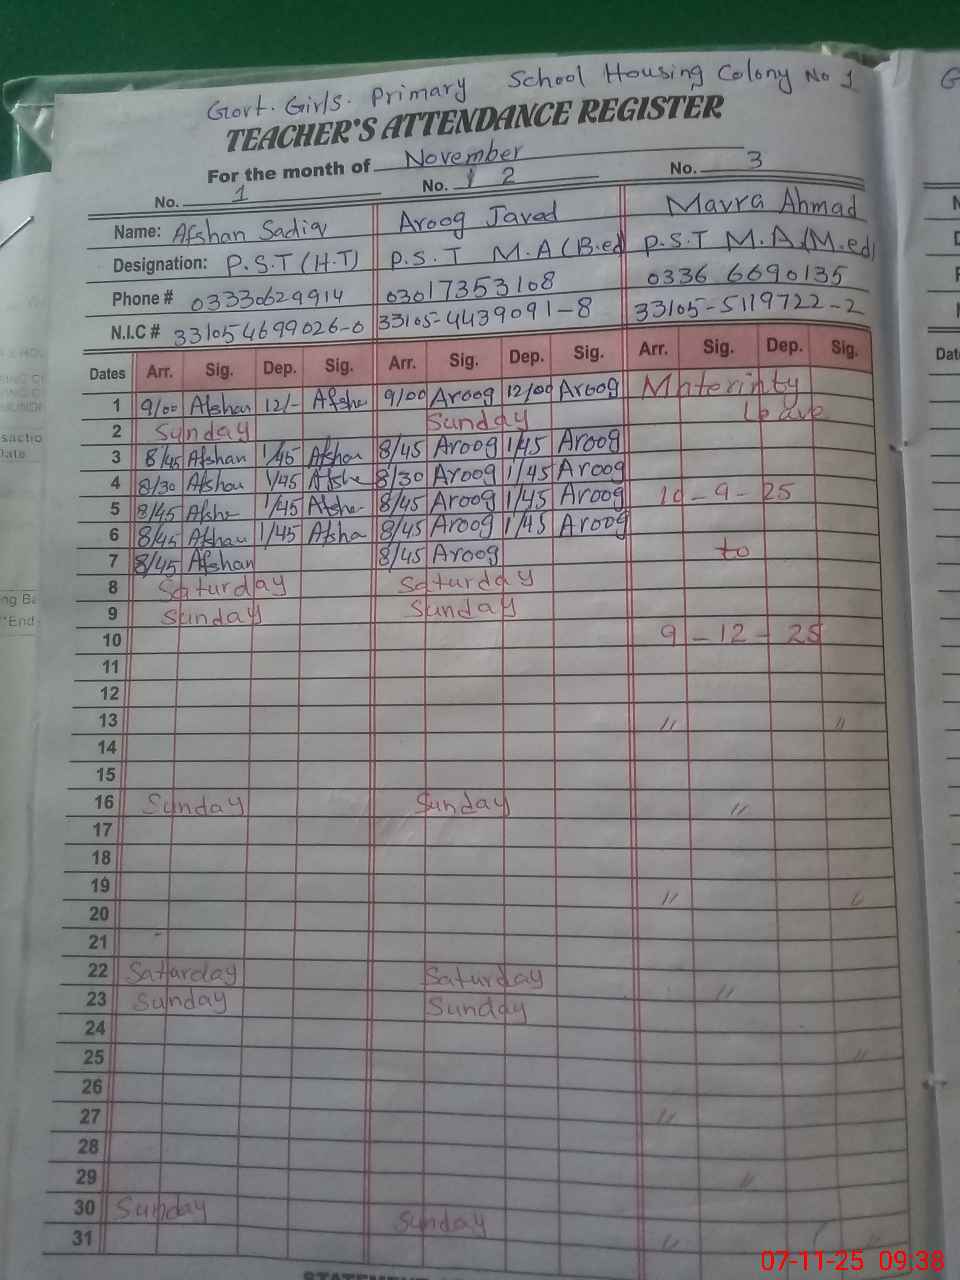 Govt. Girls. Primary School Housing Colony No 1
TEACHER'S ATTENDANCE REGISTER
For the month of November
No. 1 No. 2 No. 3
Name: Afshan Sadiq Aroog Javed Mavra Ahmad
Designation: P.S.T (H.T) P.S.T M.A (B.ed) P.S.T M.A (M.ed)
Phone # 03330629914 03017353108 0336 6690135
N.I.C # 331054699026-0 33105-4439091-8 33105-5119722-2
Dates Arr. Sig. Dep. Sig. Arr. Sig. Dep. Sig. Arr. Sig. Dep. Sig.
1 9/00 Afshan 12/- Afshe 9/00 Aroog 12/00 Aroog Mnterinty
Leave
2 Sunday Sunday
3 8/45 Afshan 1/45 Afshan 8/45 Aroog 1/45 Aroog
4 8/30 Afshan 1/45 Afshe 8/30 Aroog 1/45 Aroog
5 8/45 Afshe 1/45 Afshe 8/45 Aroog 1/45 Aroog 10-9-25
6 8/45 Afshan 1/45 Afsha 8/45 Aroog 1/45 Aroog
7 8/45 Afshan 8/45 Aroog to
8 Saturday Saturday
9 Sunday Sunday
10 9-12-25
11
12
13 " "
14
15
16 Sunday Sunday "
17
18
19 " "
20
21
22 Saturday Saturday
23 Sunday Sunday "
24
25 "
26
27 "
28
29 "
30 Sunday Sunday
31 " "
07-11-25 09:38